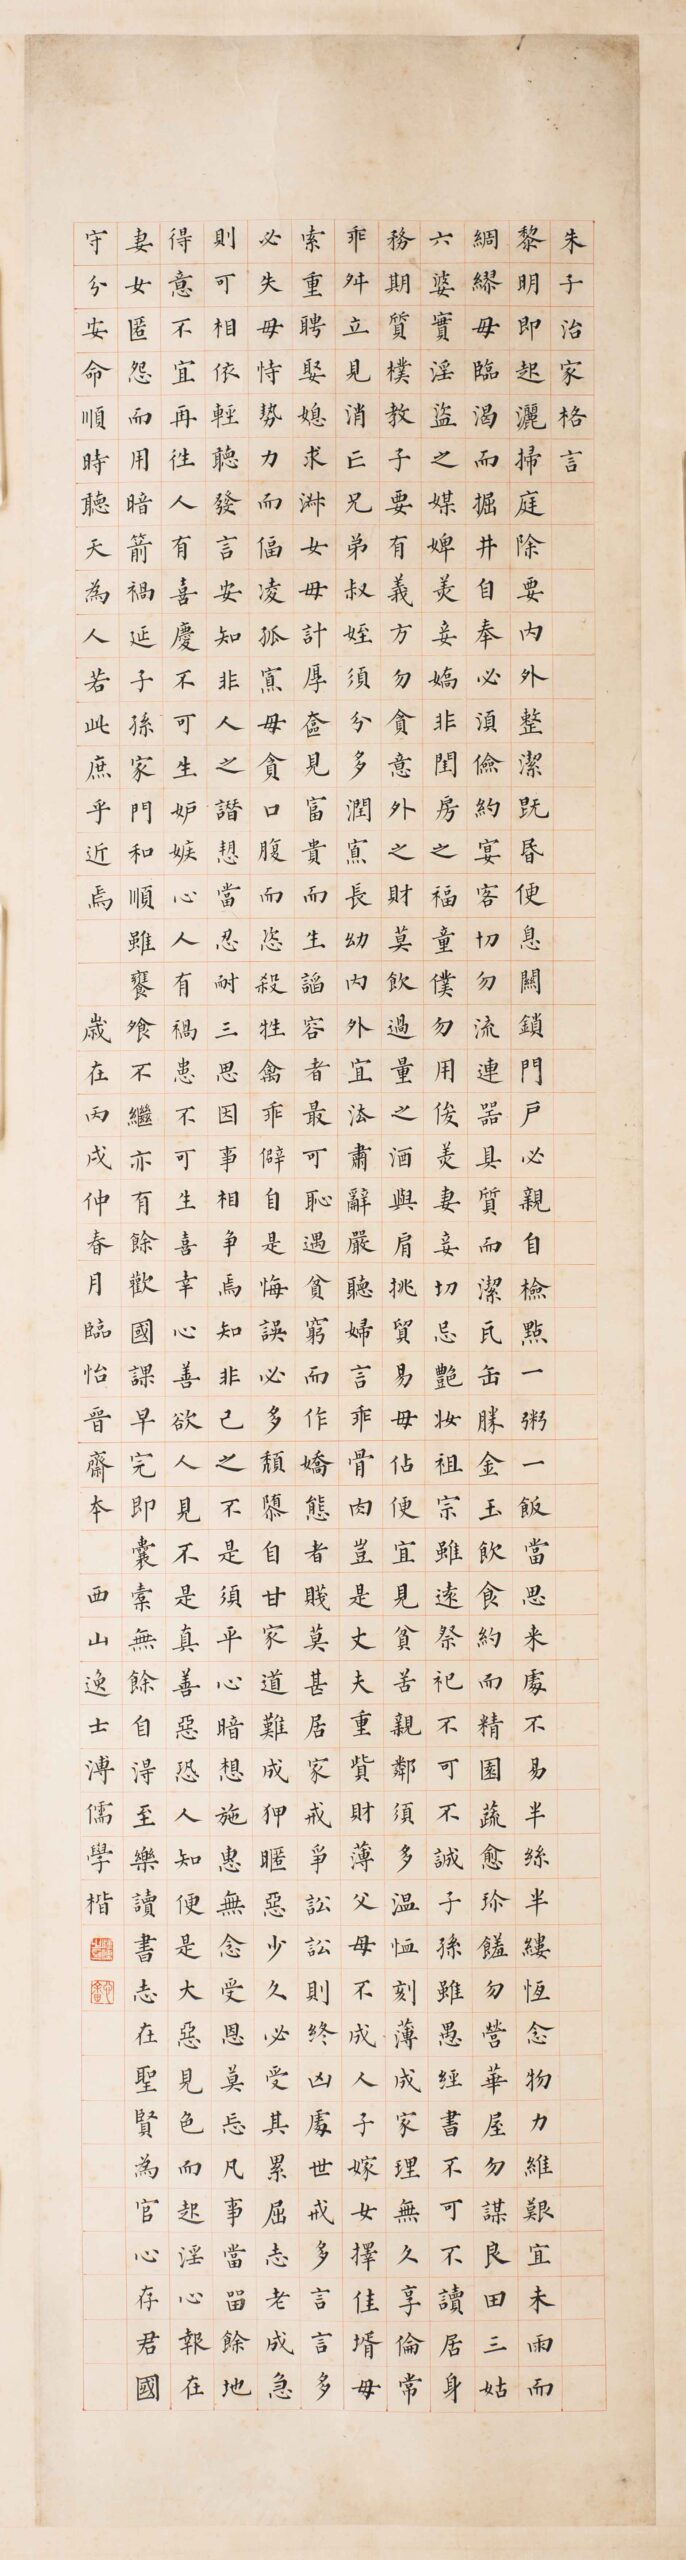 朱子治家格言
黎明即起灑掃庭除要內外整潔既昏便息關鎖門戶必親自檢點一粥一飯當思来處不易半絲半縷恆念物力維艱宜未雨而
綢繆毋臨渴而掘井自奉必須儉約宴客切勿流連器具質而潔瓦缶勝金玉飲食約而精園蔬愈珍饈勿營華屋勿謀良田三姑
六婆實淫盜之媒婢美妾嬌非閨房之福童僕勿用俊美妻妾切忌艷妝祖宗雖遠祭祀不可不誠子孫雖愚經書不可不讀居身
務期質樸教子要有義方勿貪意外之財莫飲過量之酒與肩挑貿易毋佔便宜見貧苦親鄰須多温恤刻薄成家理無久享倫常
乖舛立見消亡兄弟叔姪須分多潤寡長幼內外宜法肅辭嚴聽婦言乖骨肉豈是丈夫重貲財薄父母不成人子嫁女擇佳壻毋
索重聘娶媳求淑女毋計厚奩見富貴而生諂容者最可恥遇貧窮而作嬌態者賤莫甚居家戒爭訟訟則終凶處世戒多言言多
必失毋恃勢力而偪凌孤寡毋貪口腹而恣殺牲禽乖僻自是悔誤必多頹隳自甘家道難成狎暱惡少久必受其累屈志老成急
則可相依輕聽發言安知非人之譖愬當忍耐三思因事相争焉知非己之不是須平心暗想施惠無念受恩莫忘凡事當留餘地
得意不宜再往人有喜慶不可生妒嫉心人有禍患不可生喜幸心善欲人見不是真善惡恐人知便是大惡見色而起淫心報在
妻女匿怨而用暗箭禍延子孫家門和順雖饔飧不繼亦有餘歡國課早完即囊橐無餘自得至樂讀書志在聖賢為官心存君國
守分安命順時聽天為人若此庶乎近焉 歲在丙戌仲春月臨怡晉齋本 西山逸士溥儒學楷